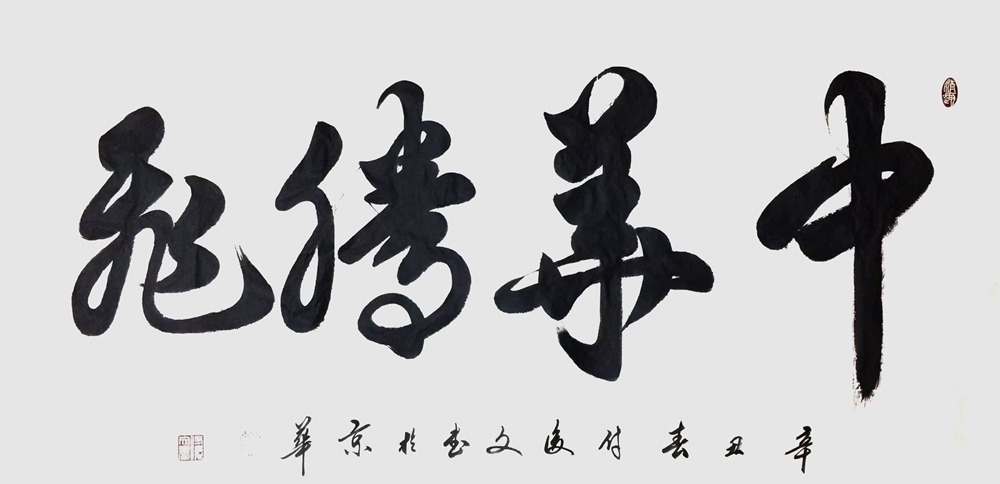 中華騰飛
辛丑春付俊文书於京華